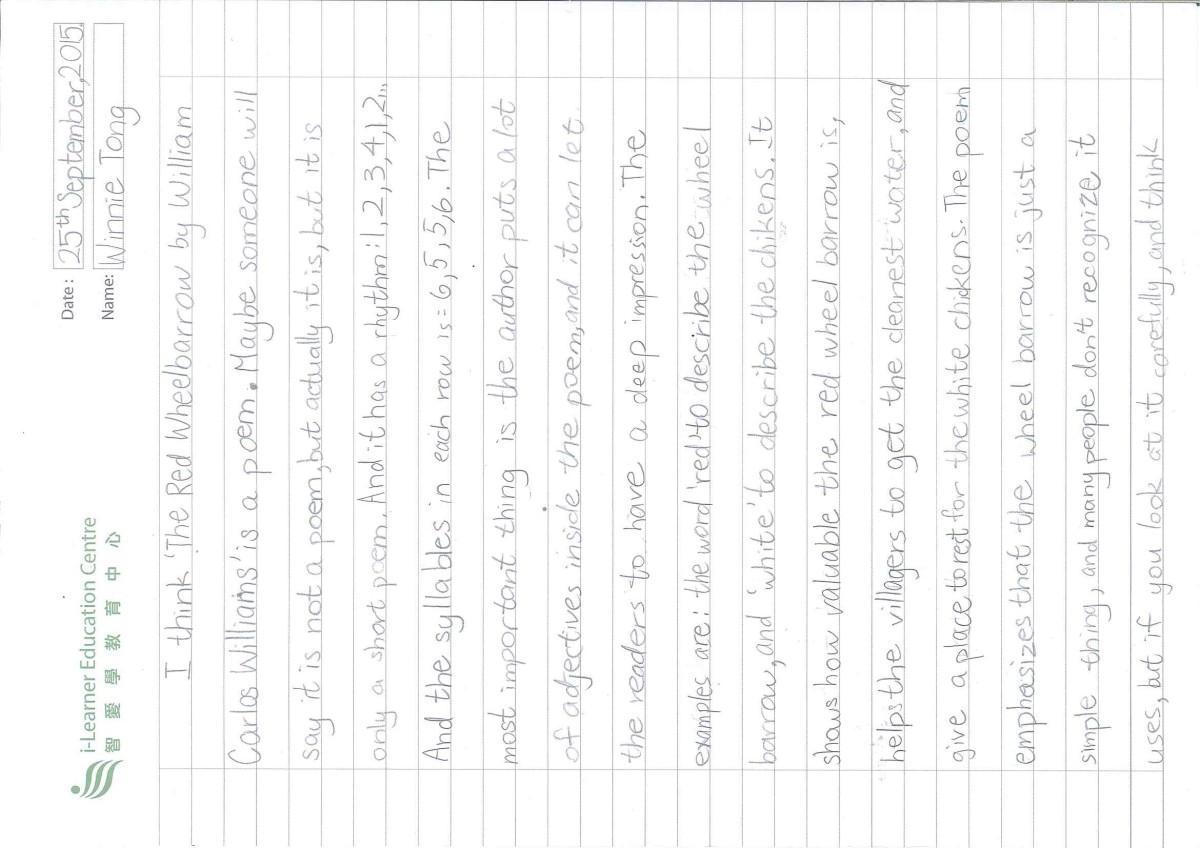 i-Learner Education Centre
智愛學教育中心
Date: 25th September, 2015.
Name: Winnie Tong
I think 'The Red Wheelbarrow by William
Carlos Williams' is a poem. Maybe someone will
say it is not a poem, but actually it is, but it is
only a short poem. And it has a rhythm: 1, 2, 3, 4, 1, 2...
And the syllables in each row is = 6, 5, 5, 6. The
most important thing is the author puts a lot
of adjectives inside the poem, and it can let
the readers to have a deep impression. The
examples are: the word 'red' to describe the wheel
barrow, and 'white' to describe the chikens. It
shows how valuable the red wheel barrow is,
helps the villagers to get the cleanest water, and
give a place to rest for the white chickens. The poem
emphasizes that the wheel barrow is just a
simple thing, and many people don't recognize it
uses, but if you look at it carefully, and think